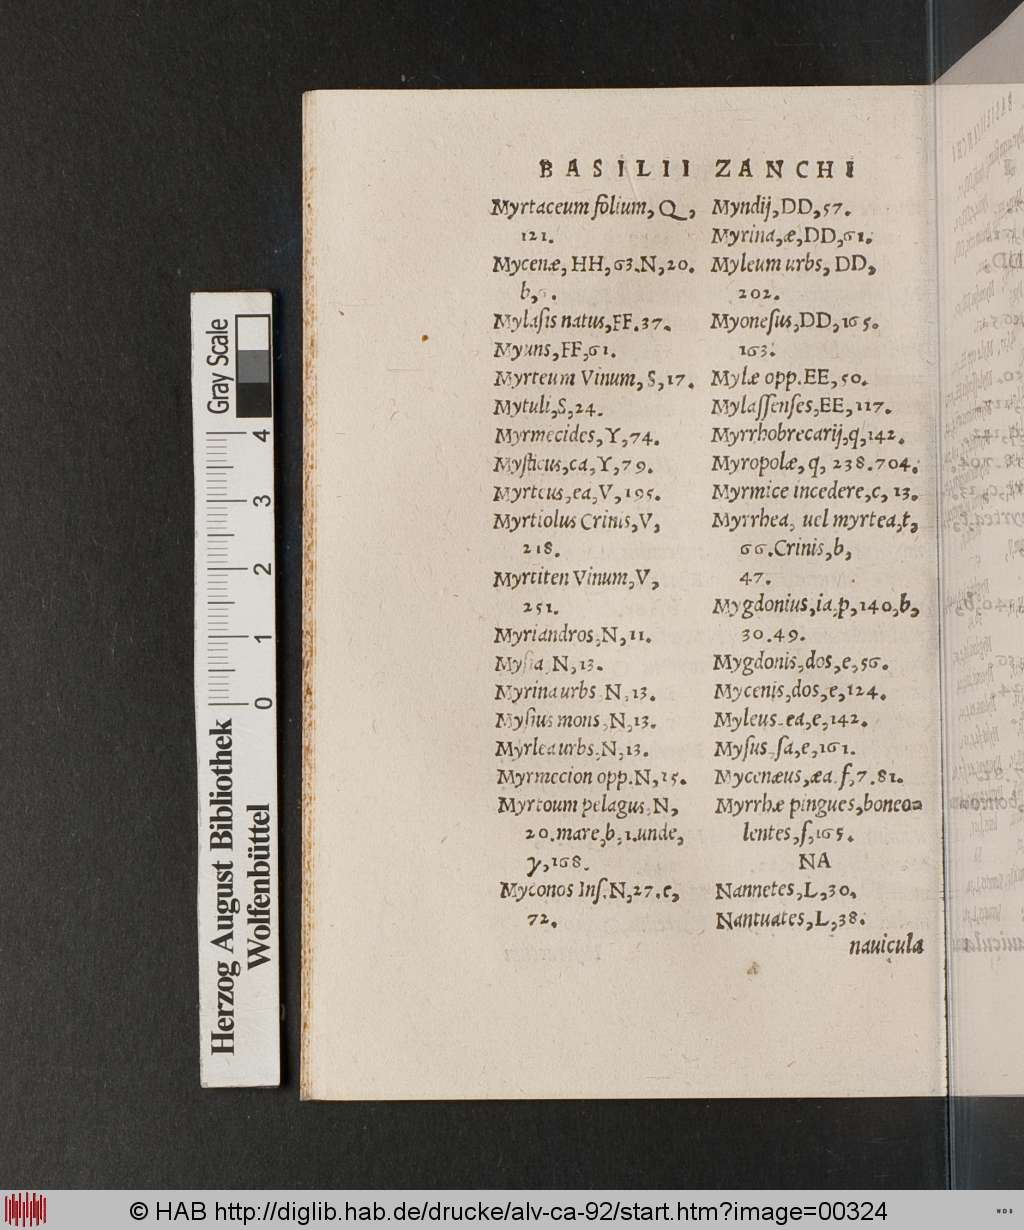 BASILII ZANCHI
Myrtaceum folium, Q,
121.
Mycenæ, HH, 63. N, 20.
b,
Mylaſis natus, FF. 37.
Myuns, FF, 61.
Myrteum Vinum, S, 17.
Mytuli, S, 24.
Myrmecides, Y, 74.
Myſticus, ca, Y, 79.
Myrteus, ea, V, 195.
Myrtiolus Crinis, V,
218.
Myrtiten Vinum, V,
251.
Myriandros, N, 11.
Myſia, N, 13.
Myrina urbs, N, 13.
Myſius mons, N, 13.
Myrlea urbs, N, 13.
Myrmecion opp. N, 15.
Myrtoum pelagus, N,
20. mare, b, 1. unde,
y, 168.
Myconos Inſ. N, 27. e,
72.
Myndij, DD, 57.
Myrina, æ, DD, 61.
Myleum urbs, DD,
202.
Myoneſus, DD, 165.
163.
Mylæ opp. EE, 50.
Mylaſſenſes, EE, 117.
Myrrhobrecarij, q, 142.
Myropolæ, q, 238. 704.
Myrmice incedere, c, 13.
Myrrhea, uel myrtea, t,
66. Crinis, b,
47.
Mygdonius, ia, p, 140, b,
30. 49.
Mygdonis, dos, e, 56.
Mycenis, dos, e, 124.
Myleus, ea, e, 142.
Myſus, ſa, e, 161.
Mycenæus, æa, f, 7. 81.
Myrrhæ pingues, boneo=
lentes, ſ, 165.
NA
Nannetes, L, 30.
Nantuates, L, 38.
nauicula
Gray Scale
4
3
2
1
0
Herzog August Bibliothek
Wolfenbüttel
© HAB http://diglib.hab.de/drucke/alv-ca-92/start.htm?image=00324